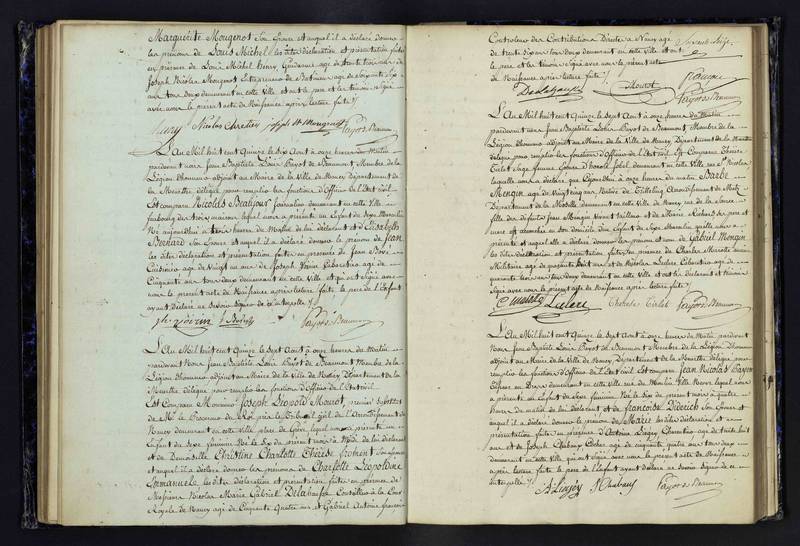 Marguerite Mougenot Son Epouse et auquel il a déclaré donner
les prénoms de Louis Michel, les dites déclaration et présentation faites
en présence de Louis Michel Henry, agé de trente trois ans et de
Joseph Nicolas Mougenot Entrepreneur de Batimens agé de soixante Six
ans tous deux demeurant en cette Ville et ont le père et les témoins signé
avec nous le présent acte de Naissance après lecture faite./.
Henry Nicolas Chretien Joseph N Mougenot Payot de Beaumont
L'An Mil huit cent Quinze le Six Août à onze heures du Matin
pardevant nous Jean Baptiste Louis Payot de Beaumont Membre de la
Légion d'honneur adjoint au Maire de la Ville de Nancy Département de
la Meurthe délégué pour remplir les fonctions d'Officier de l'Etat civil
Est comparu Nicolas Beaujour Journalier demeurant en cette Ville
faubourg des trois maisons lequel nous a présenté un Enfant du Sexe Masculin
Né aujourd'hui à trois heures du Matin de lui déclarant et d'Elisabeth
Bernard Son Epouse et auquel il a déclaré donner le prénom de Jean
les dites déclaration et présentation faites en présence de Jean
Cuisinier agé de Vingt un ans et de Joseph Voirin Cabaretier agé de
Cinquante ans tous deux demeurant en cette Ville et qui ont signé avec
nous le présent acte de Naissance après lecture faite, le père de l'Enfant
ayant déclaré ne savoir signer de ce interpellé./.
Jh Voirin Payot de Beaumont
L'An Mil huit cent Quinze le Sept Août à onze heures du Matin
pardevant Nous Jean Baptiste Louis Payot de Beaumont Membre de la
Légion d'honneur adjoint au Maire de la Ville de Nancy Département de la
Meurthe délégué pour remplir les fonctions d'Officier de l'Etat civil
Est Comparu Monsieur Joseph Léopold Mourot, premier Substitut
de Mr. le Procureur du Roi près le Tribunal civil de l'Arrondissement de
Nancy demeurant en cette Ville place de Grève, lequel nous a présenté un
Enfant du Sexe féminin Né le Six du présent mois à Midi de lui déclarant
et de Demoiselle Christine Charlotte Thérèse Froment Son Epouse
et auquel il a déclaré donner les prénoms de Charlotte Léopoldine
Emmanuele, les dites déclaration et présentation faites en présence de
Messieurs Nicolas Marie Gabriel Delahausse Conseiller à la Cour
Royale de Nancy agé de Cinquante Quatre ans, et Gabriel Antoine François
Controleur des Contributions Directes à Nancy agé
de trente Six ans tous deux demeurant en cette Ville et ont
le père et les témoins signé avec nous le présent acte
de Naissance après lecture faite./.
Delahausse Mourot François Payot de Beaumont
L'An Mil huit cent Quinze le Sept Août à onze heures du Matin
pardevant nous Jean Baptiste Louis Payot de Beaumont Membre de la
Légion d'honneur adjoint au Maire de la Ville de Nancy, Département de la Meurthe
délégué pour remplir les fonctions d'Officier de l'Etat civil Est Comparue Thérèse
Tielet Sage femme demeurant en cette Ville rue St. Nicolas
laquelle nous a déclaré que à onze heures du matin Barbe
Mengin agée de Vingt cinq ans Native de Arrondissement de Metz
Département de la Moselle demeurant en cette Ville de Nancy rue de la Source
fille de Jean Mengin Vivant tailleur et de Marie Richard ses père et
mère est accouchée en son domicile d'un Enfant du Sexe Masculin qu'elle nous a
présenté et auquel elle a déclaré donner les prénom et nom de Gabriel Mengin
les dites déclaration et présentation faites en présence de Charles
Militaire agé de quarante huit ans et de Nicolas Leclerc Cabaretier agé de
trente ans tous deux demeurant en cette Ville et ont la déclarante et témoins
signé avec nous le présent acte de Naissance après lecture faite./.
Leclerc Therese Tielet Payot de Beaumont
L'An Mil huit cent Quinze le Sept Août à onze heures du Matin pardevant
Nous Jean Baptiste Louis Payot de Beaumont Membre de la Légion d'honneur
adjoint au Maire de la Ville de Nancy, Département de la Meurthe délégué pour
remplir les fonctions d'Officier de l'Etat civil Est comparu Jean Nicolas
demeurant en cette Ville rue du Moulin Ville Neuve lequel nous
a présenté un Enfant du Sexe féminin Né le Six du présent mois à quatre
heures du matin de lui déclarant et de Françoise Diderich Son Epouse et
auquel il a déclaré donner le prénom de Marie les dites déclaration et
présentation faites en présence d'Antoine agé de trente huit
ans et de Joseph Chabaux, Cocher agé de cinquante quatre ans tous deux
demeurant en cette Ville qui ont signé avec nous le présent acte de Naissance
après lecture faite le père de l'Enfant ayant déclaré ne savoir signer de ce
interpellé./.
J Chabaux Payot de Beaumont